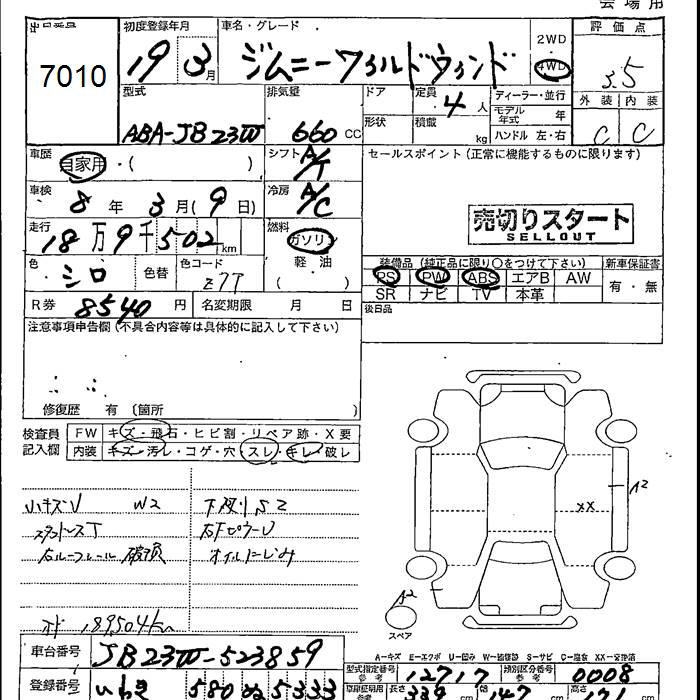 会場用
出品番号 初度登録年月 車名・グレード 評価点
7010 19 3月 ジムニーワイルドウインド 2WD 4WD 3.5
型式 排気量 ドア 定員 ディーラー・並行 外装 内装
ABA-JB23W 660 CC 4人 モデル年式 年 C C
形状 積載 kg ハンドル 左・右
車歴 自家用・( ) シフト A/T セールスポイント(正常に機能するものに限ります)
車検 8年3月(9日) 冷房 A/C
売切りスタート
SELLOUT
走行 18万9千502km 燃料 ガソリン 軽・油
装備品(純正品に限り○をつけて下さい) 新車保証書
色 シロ 色替 色コード Z7T
PS PW ABS エアB AW 有・無
SR ナビ TV 本革
R券 8540円 名変期限 月 日
後日品
注意事項申告欄(不具合内容等は具体的に記入して下さい)
修復歴 有〔箇所 〕
検査員記入欄 FW キズ・飛石・ヒビ割・リペア跡・X要
内装 キズ・汚レ・コゲ・穴・スレ・キレ・破レ
小キズU W2 下廻りS2
スタットレスT
右ルーフレール オイルにじみ
XX A2
A2
スペア
189504km
A-キズ E-エクボ U-凹み W-補修跡 S-サビ C-腐食 XX-交換済
車台番号 JB23W-523859
型式指定番号 参考 12717 類別区分番号 参考 0008
登録番号 いわき 580 ぬ 5333
長さ 339 cm 幅 147 cm 高さ